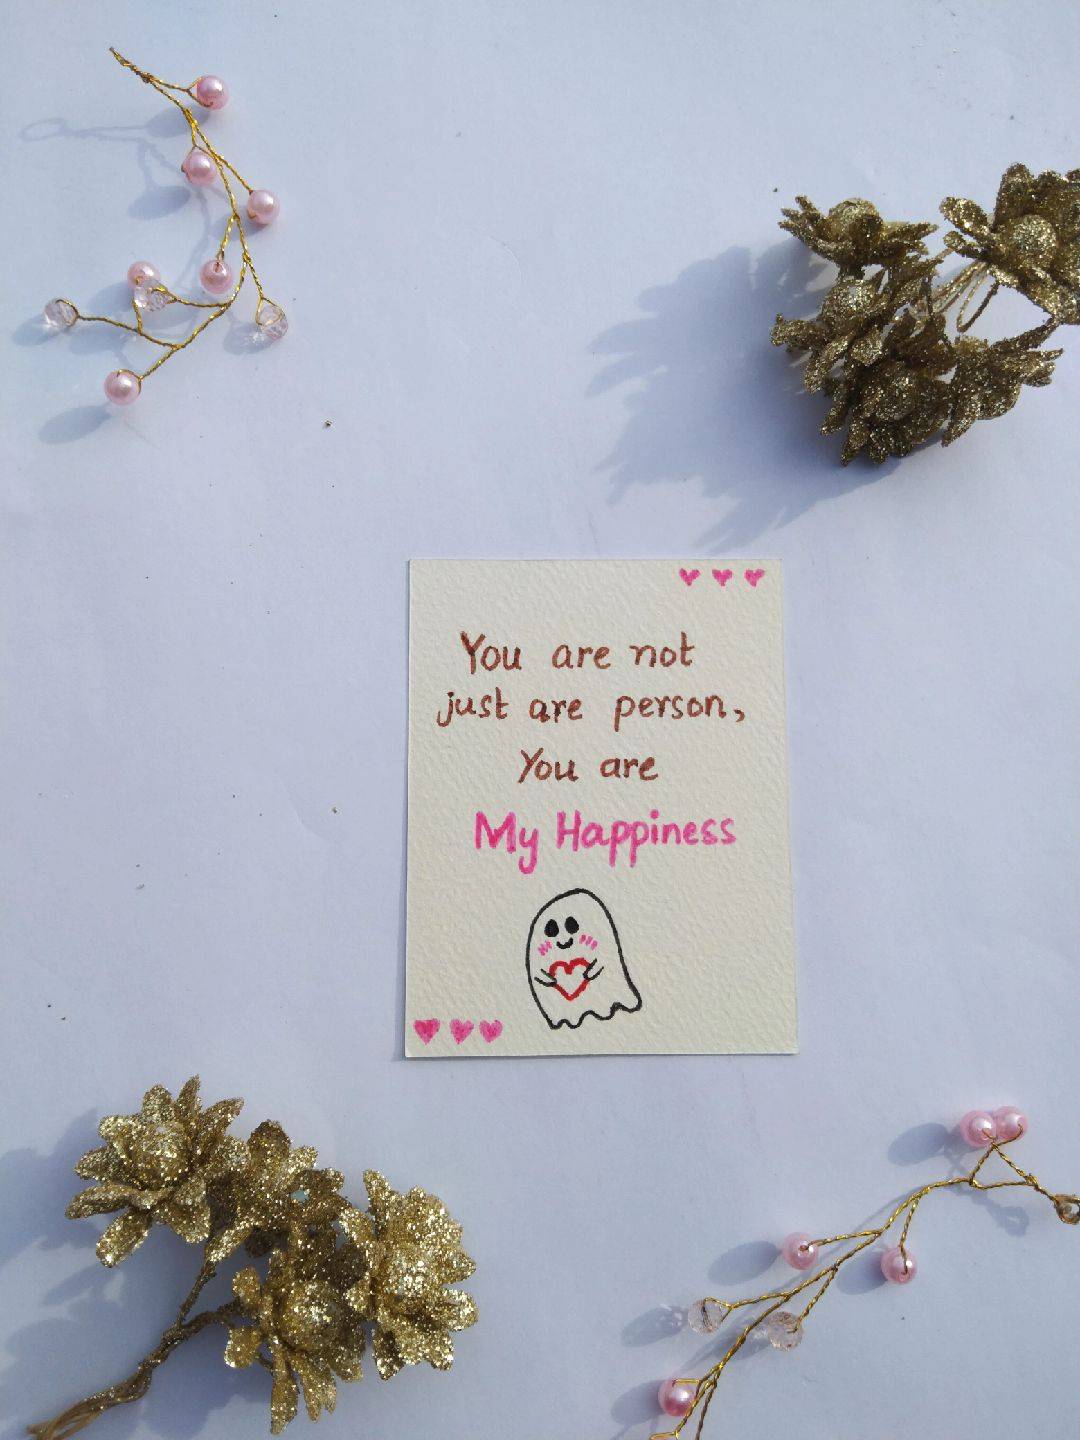 You are not
just are person,
You are
My Happiness